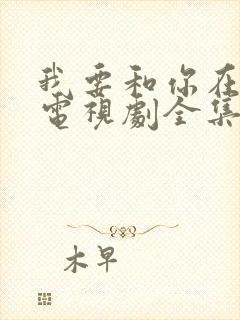 我要和你在
電視劇全集
木早